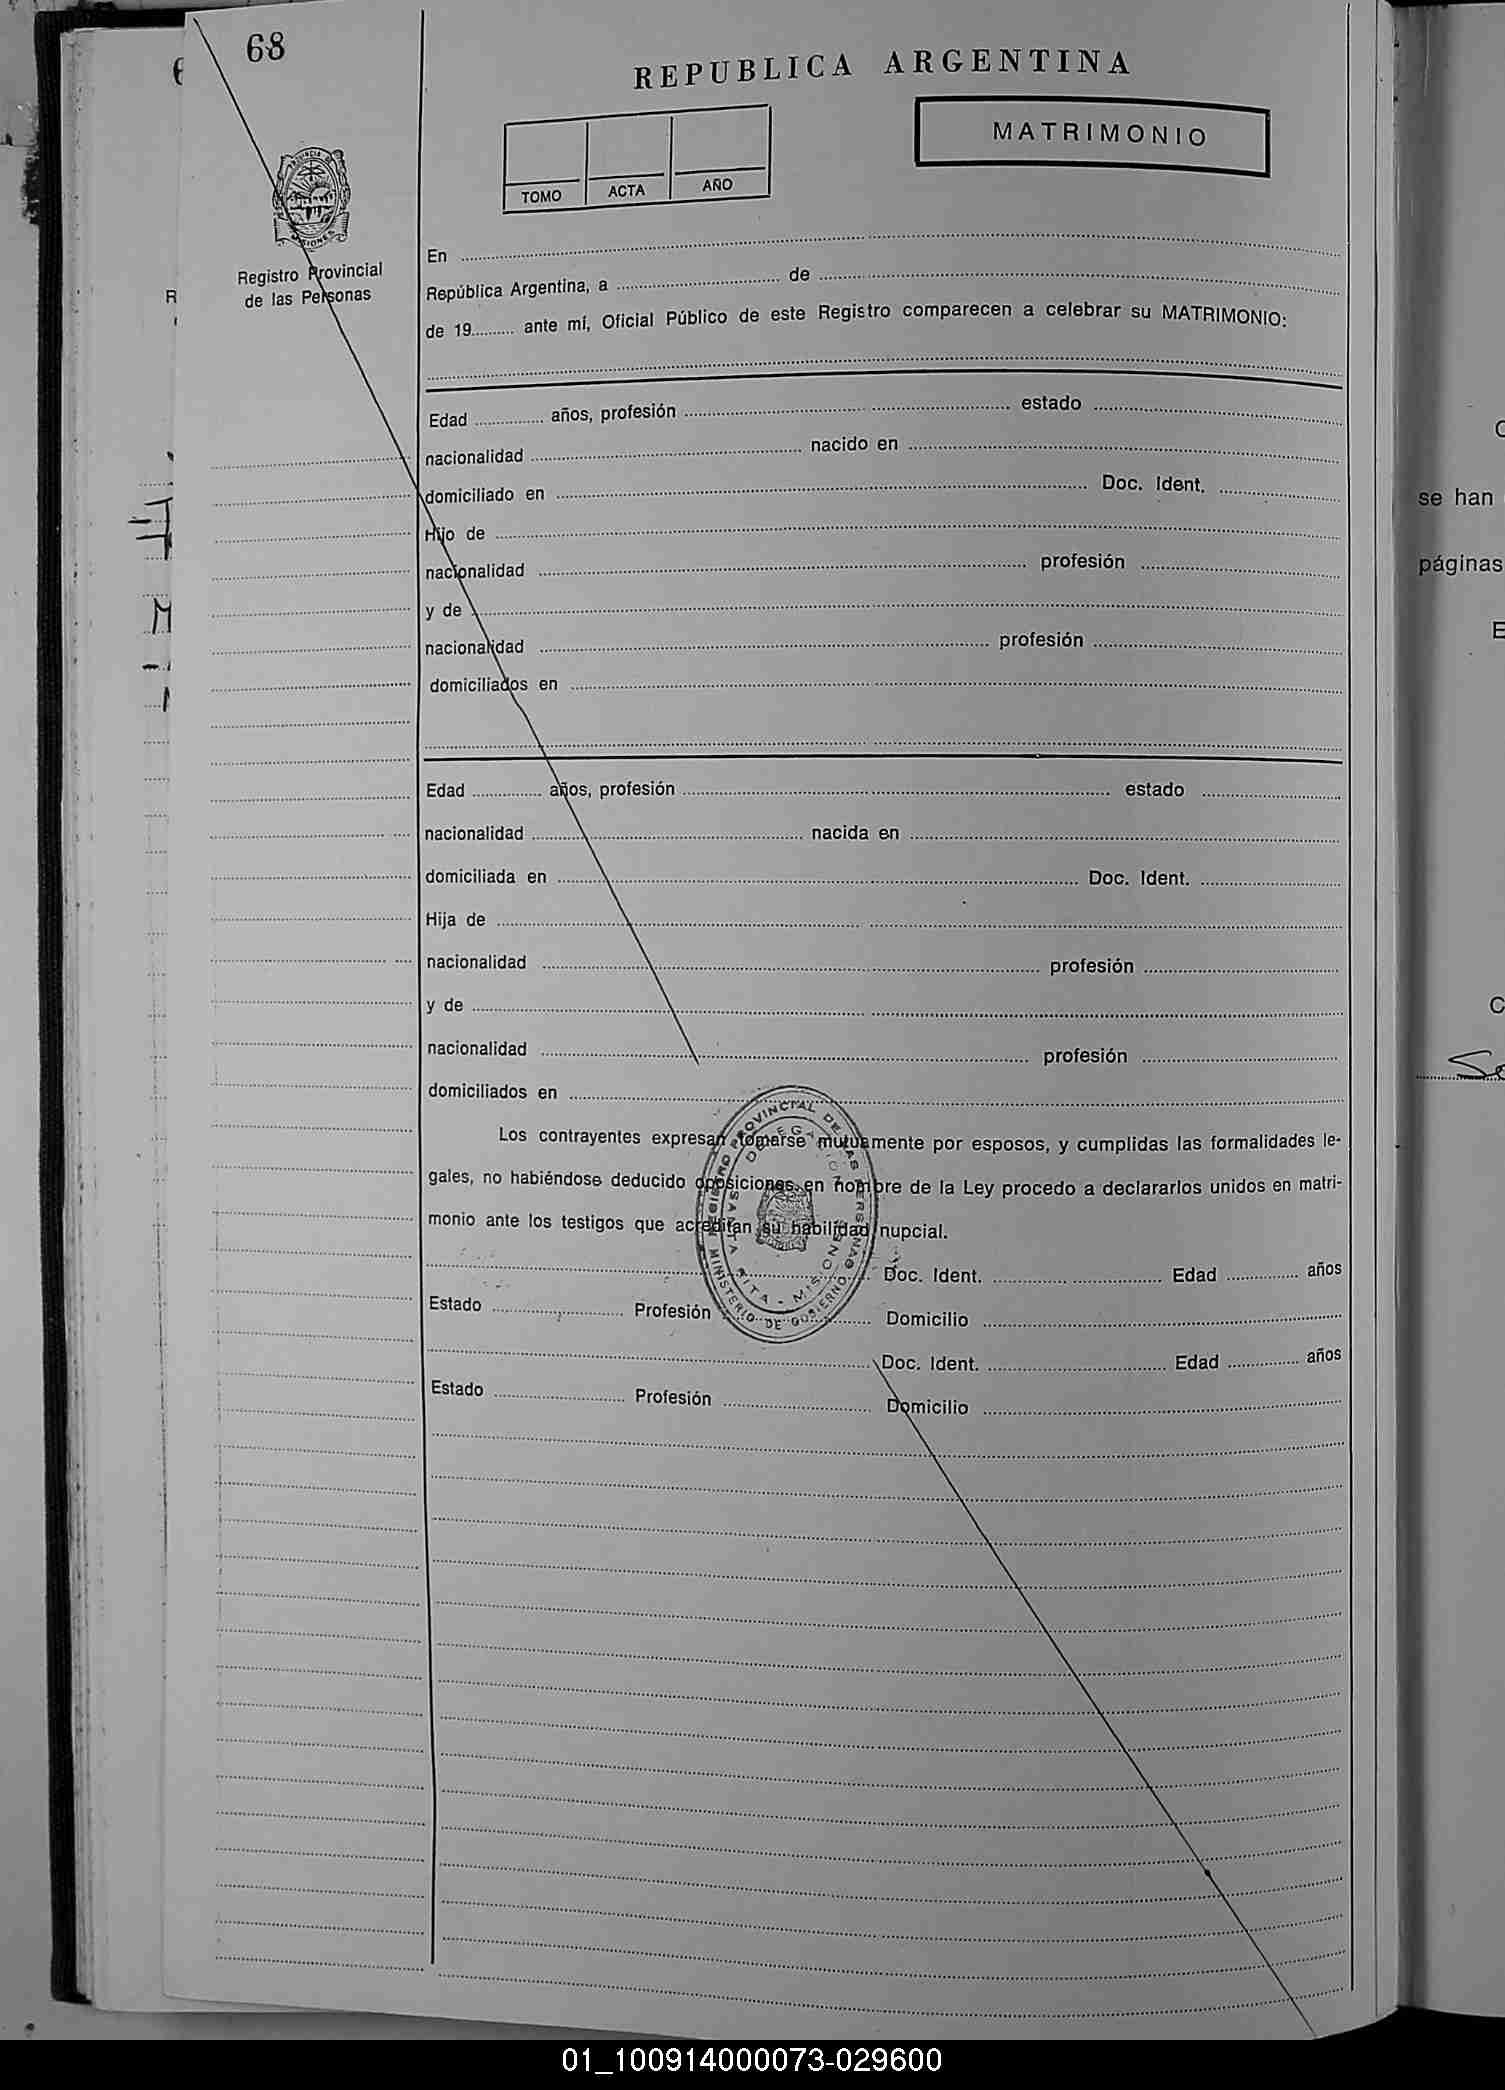 68
REPUBLICA ARGENTINA
MATRIMONIO
TOMO ACTA AÑO
MISIONES
Registro Provincial
de las Personas
En
República Argentina, a de
de 19 ante mí, Oficial Público de este Registro comparecen a celebrar su MATRIMONIO:
Edad años, profesión estado
nacionalidad nacido en
domiciliado en Doc. Ident.
Hijo de
nacionalidad profesión
y de
nacionalidad profesión
domiciliados en
Edad años, profesión estado
nacionalidad nacida en
domiciliada en Doc. Ident.
Hija de
nacionalidad profesión
y de
nacionalidad profesión
domiciliados en
Los contrayentes expresan tomarse mutuamente por esposos, y cumplidas las formalidades le-
gales, no habiéndose deducido oposiciones, en nombre de la Ley procedo a declararlos unidos en matri-
monio ante los testigos que acreditan su habilidad nupcial.
Doc. Ident. Edad años
Estado Profesión Domicilio
Doc. Ident. Edad años
Estado Profesión Domicilio
REGISTRO PROVINCIAL DE LAS PERSONAS
MINISTERIO DE GOBIERNO
DELEGACION
SANTA RITA - MISIONES
se han
páginas
01_100914000073-029600